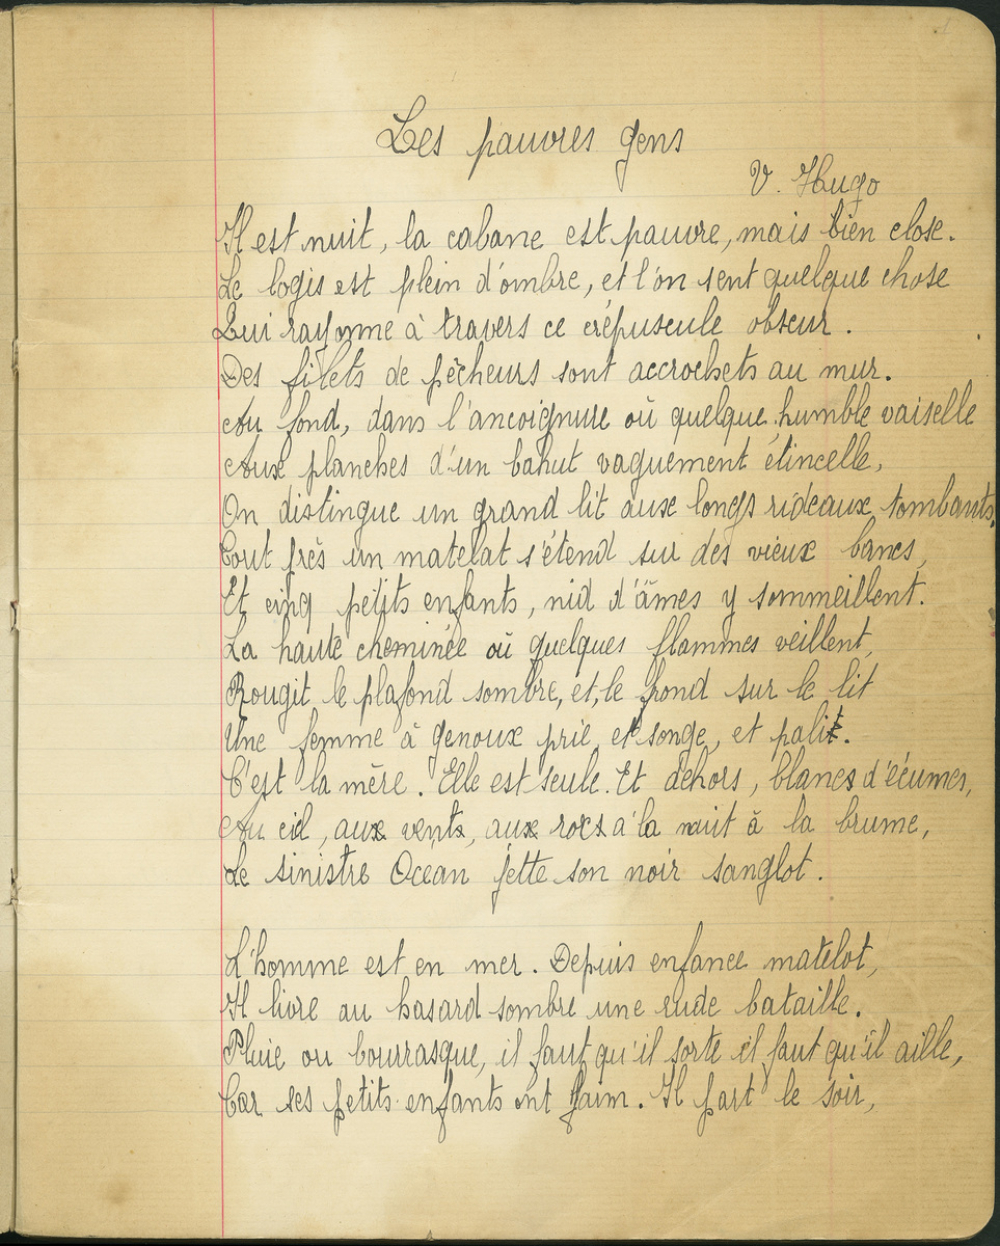 Les pauvres gens
V. Hugo
Il est nuit, la cabane est pauvre, mais bien close.
Le logis est plein d'ombre, et l'on sent quelque chose
Qui rayonne à travers ce crépuscule obscur.
Des filets de pêcheurs sont accrochets au mur.
Au fond, dans l'ancoignure où quelque humble vaiselle
Aux planches d'un bahut vaguement étincelle,
On distingue un grand lit aux longs rideaux tombants.
Tout près un matelat s'étend sur des vieux bancs,
Et cinq petits enfants, nid d'âmes y sommeillent.
La haute cheminée où quelques flammes veillent,
Rougit le plafond sombre, et, le frond sur le lit
Une femme à genoux prie, et songe, et palit.
C'est la mère. Elle est seule. Et dehors, blancs d'écumes,
Au ciel, aux vents, aux rocs a la nuit à la brume,
Le sinistre Ocean jette son noir sanglot.
L'homme est en mer. Depuis enfance matelot,
Il livre au hasard sombre une rude bataille.
Pluie ou bourrasque, il faut qu'il sorte il faut qu'il aille,
Car ses petits enfants ont faim. Il part le soir,